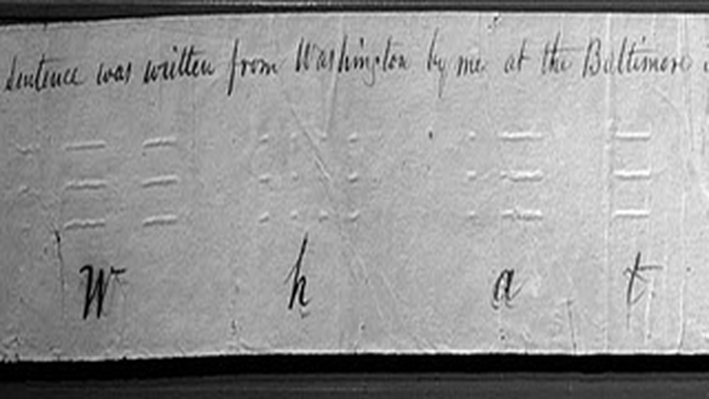 sentence was written from Washington by me at the Baltimore
W h a t